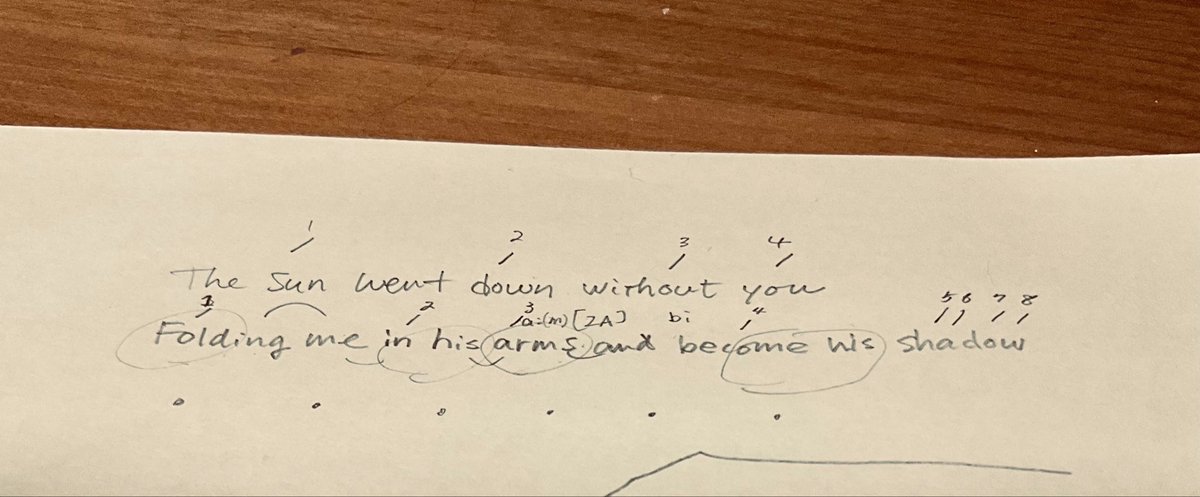 1 2 3 4
The Sun went down without you
1 2 3 a:(m) [ZA] bi 4 5 6 7 8
Folding me in his arms and become his shadow